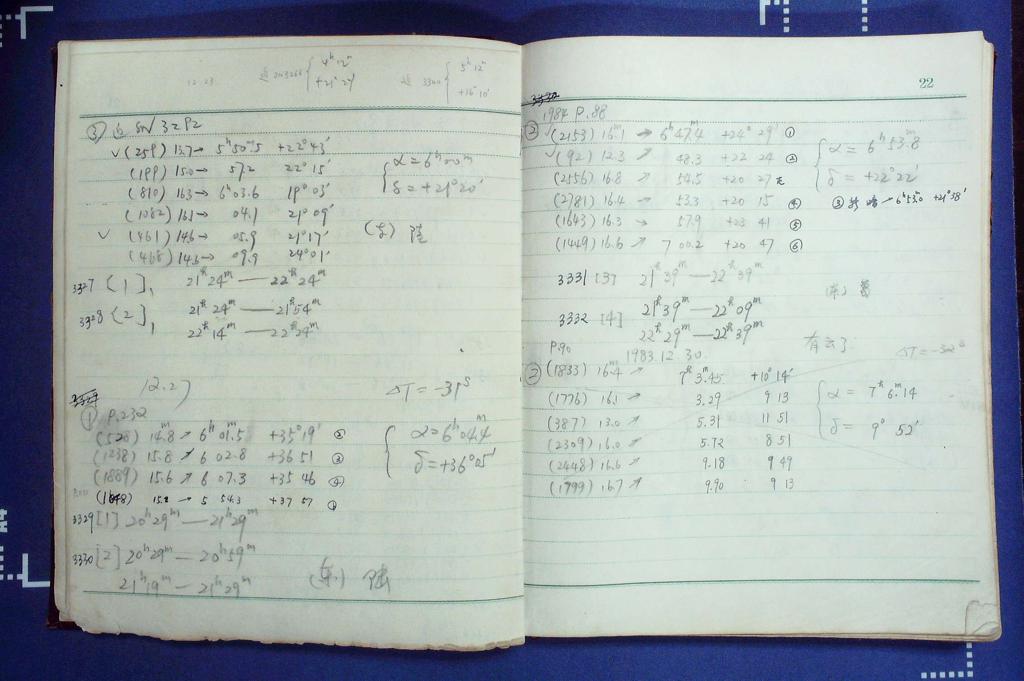 12.23
3266 { 4ʰ 12ᵐ
+21° 27′
3300 { 5ʰ 12ᵐ
+16° 10′
③ 3292
✓ (259) 13.7→ 5ʰ50ᵐ.5 +22°43′
(199) 15.0→ 57.2 22°15′
(810) 16.3→ 6ʰ03.6 19°03′
(1082) 16.1→ 04.1 21°09′
✓ (461) 14.6→ 05.9 21°17′
(468) 14.6→ 09.9 24°01′
{ α=6ʰ00ᵐ
δ=+21°20′
陆
3327 [1], 21ʰ24ᵐ—22ʰ24ᵐ
3328 [2], 21ʰ24ᵐ—21ʰ54ᵐ
22ʰ14ᵐ—22ʰ24ᵐ
12.27 ΔT=-31ˢ
① P.232
(528) 14ᵐ.8→ 6ʰ01ᵐ.5 +35°19′ ②
(1238) 15.8↗ 6 02.8 +36 51 ③
(1889) 15.6↗ 6 07.3 +35 46 ④
(1648) 15.2→ 5 54.3 +37 57 ①
{ α=6ʰ04ᵐ.4
δ=+36°05′
3329 [1] 20ʰ29ᵐ—21ʰ29ᵐ
3330 [2] 20ʰ29ᵐ—20ʰ59ᵐ
21ʰ19ᵐ—21ʰ29ᵐ (东) 陆
22
1984 P.88
② ✓(2153) 16ᵐ.1 → 6ʰ47ᵐ.4 +24° 29′ ①
✓(92) 12.3 ↗ 48.3 +22 24 ②
(2556) 16.8 ↗ 54.5 +20 27
(2781) 16.4 → 53.3 +20 15 ④
(1643) 16.3 ↗ 57.9 +23 41 ⑤
(1449) 16.6 ↗ 7 00.2 +20 47 ⑥
{ α= 6ʰ53ᵐ.8
δ= +22°22′
③ 6ʰ53ᵐ.0 +21°38′
3331 [3] 21ʰ39ᵐ—22ʰ39ᵐ
(东)
3332 [4] 21ʰ39ᵐ—22ʰ09ᵐ
22ʰ29ᵐ—22ʰ39ᵐ
P.90 1983.12.30. 有云了 ΔT=-32ˢ
② (1833) 16ᵐ.4 ↗ 7ʰ3ᵐ.45 +10°14′
(1776) 16.1 ↗ 3.29 9 13
(387) 13.0 ↗ 5.31 11 51
(2309) 16.0 ↗ 5.72 8 51
(2448) 16.6 ↗ 9.18 9 49
(1799) 16.7 ↗ 9.90 9 13
{ α= 7ʰ6ᵐ.14
δ= 9° 52′